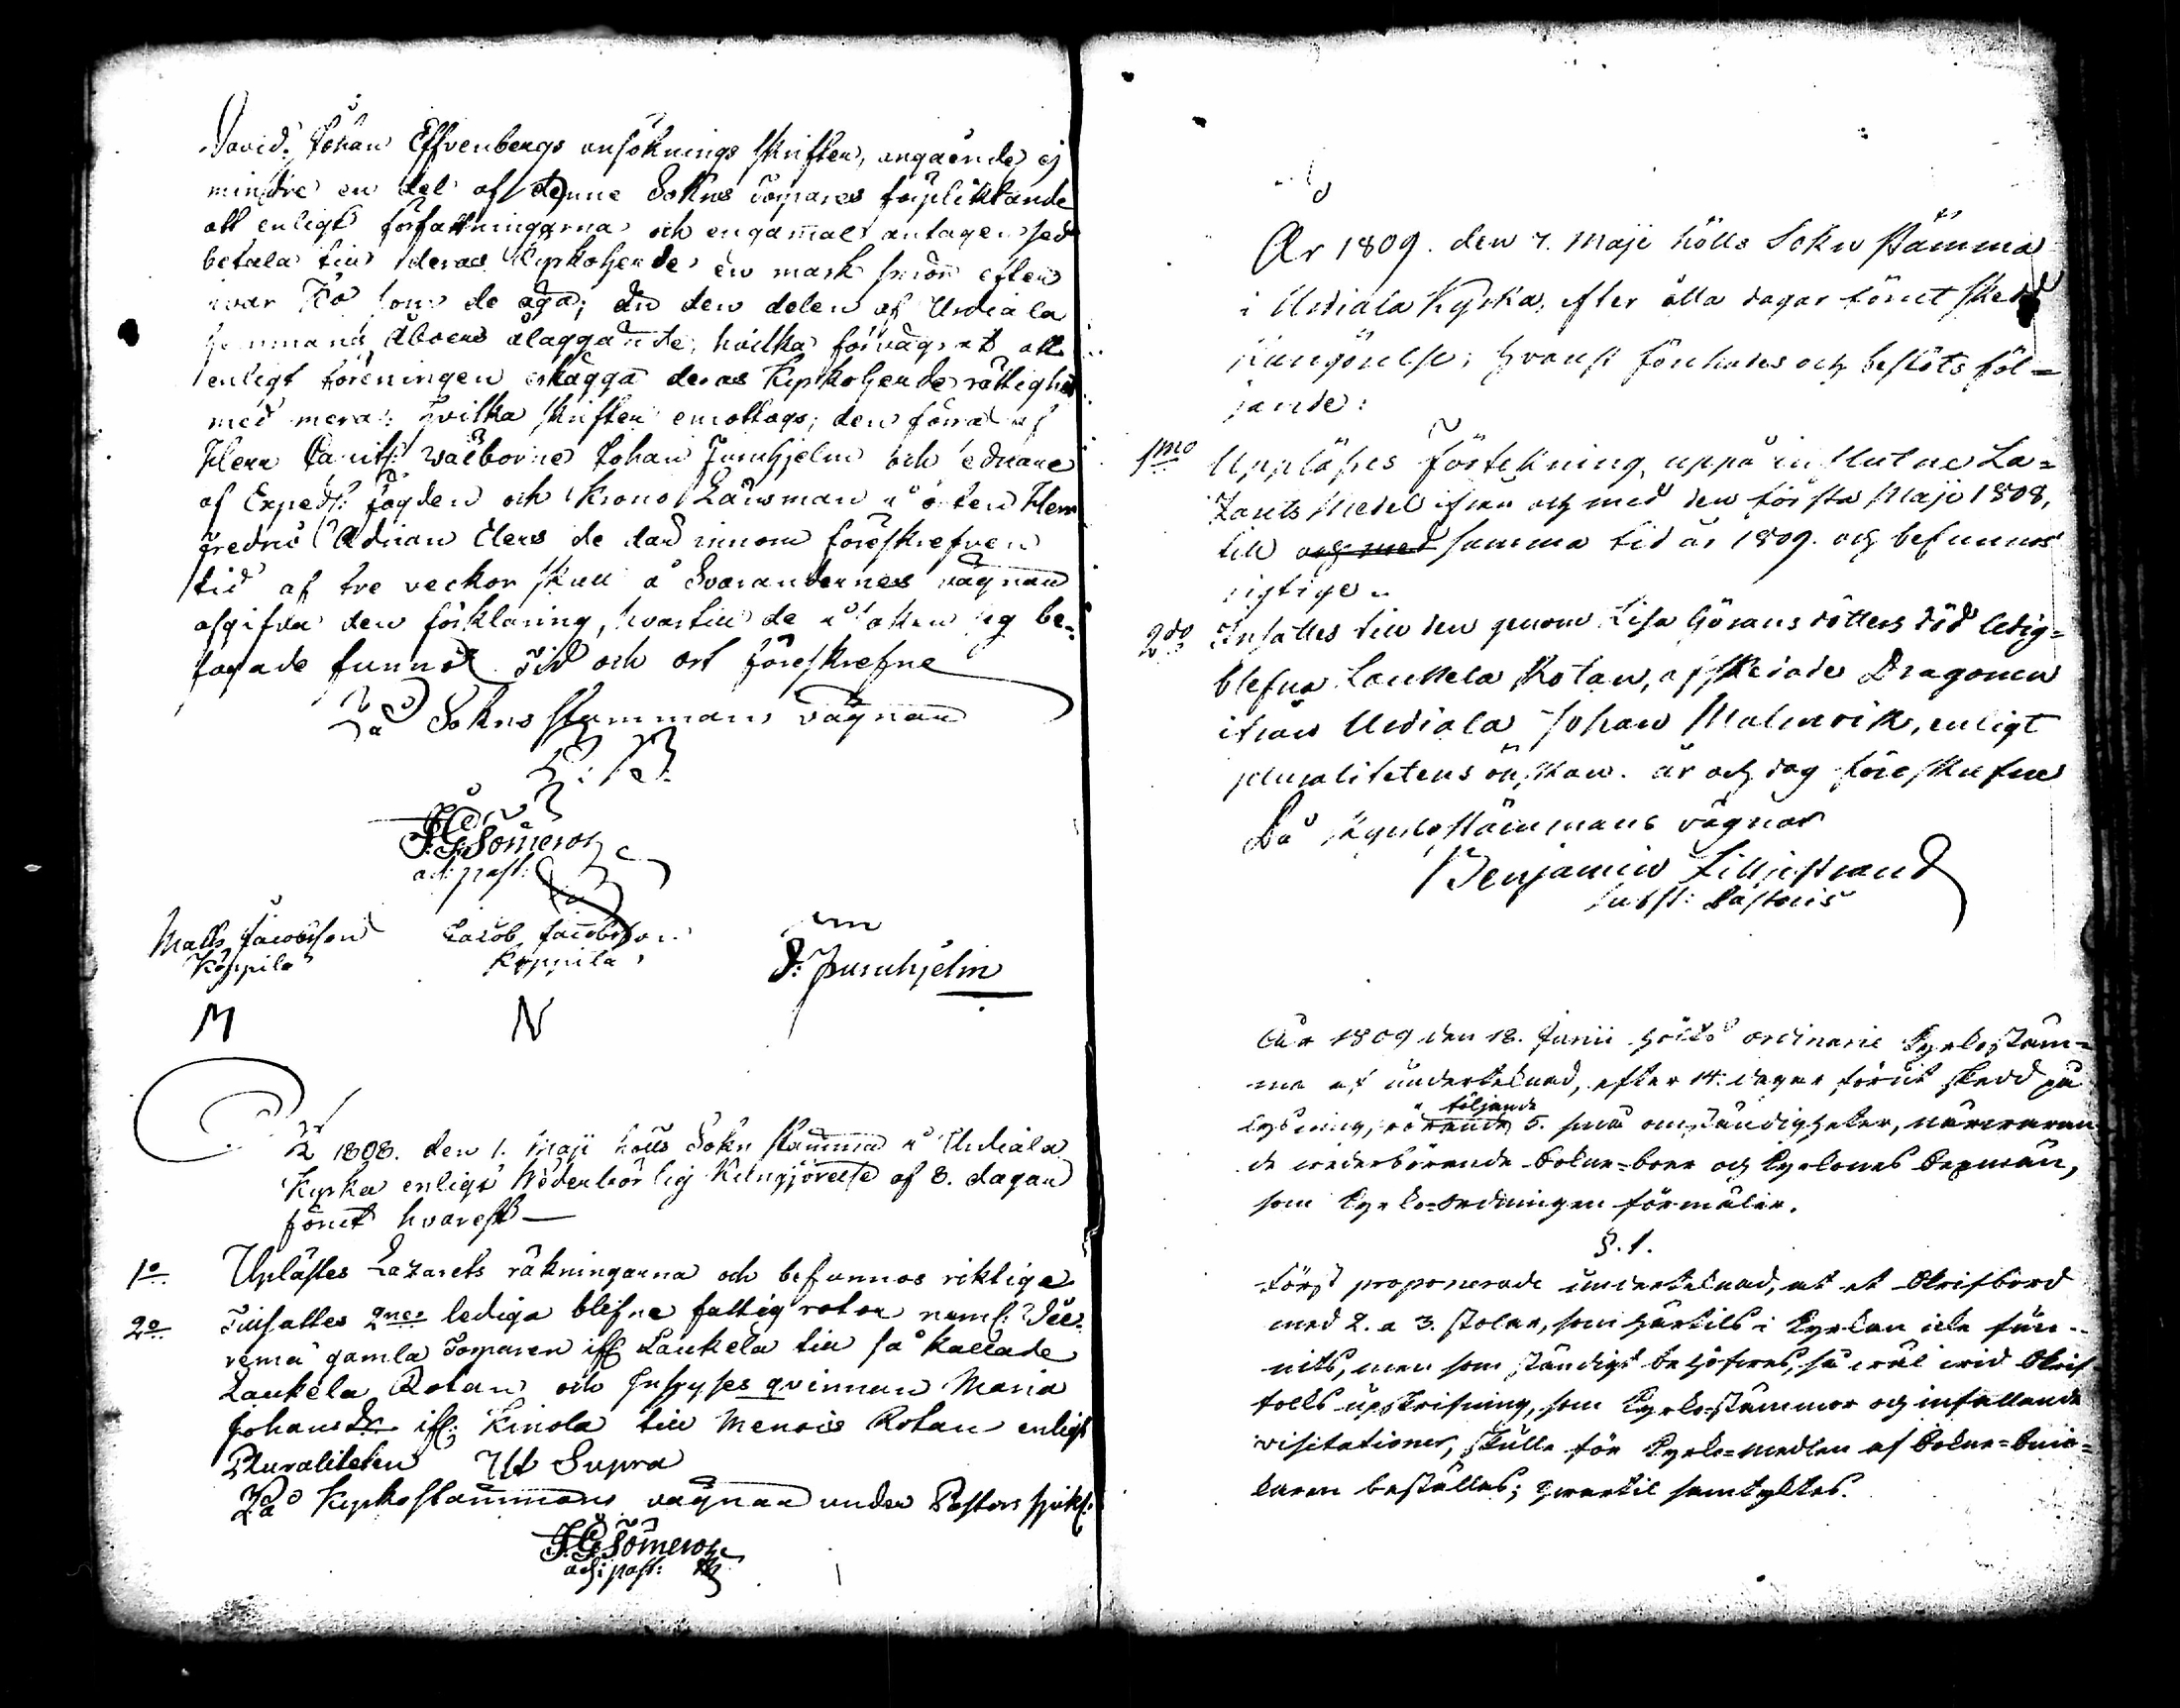 David. Johan Effvenbergs ansöknings skriften, angaende ej
mindre en del af denne Sokns Torpares förpliktande
att enligt författningarna och engammal antagen sed
betala till deras Kyrkoherde en mark smör efter
hvar Ko som de äga; än den delen af Urdiala
hemmans Åboers åläggande, hvilka förvägrat att
enligt föreningen erlägga deras Kyrkoherde rättighet
med mera: Hvilka skriften emottogs; den förra af
Herr Capit: Wälborne Johan Jurnhjelm och sednare
af Exped: fogden och Krono Länsman à orten Herr
Fredric Adrian Clers de dar innom föreskrefven
tid af tre veckor skull à Svarandernes vägnar
afgifva den förklaring, hvartill de à saken sig be-
fogade funno. Tid och ort föreskrefne
På Sokne stammans vägnar
J. G. Someroy
adj: past:
Matts Jacobsson Jacob Jacobsson
Köppilä Köppilä J: Jurnhjelm
M N
År 1808. den 1. Maji holls Sokn stamma à Urdiala
Kyrka enligt Wederbörlig Kungjörelse af 8. dagar
förut hvarest
1o Uplästes Lazarets räkningarna och befunnos riktige
2o Tillsattes 2ne lediga blifne fattig rotar neml:
gamla Torparen ifr Laukela till så kallade
Laukela Rotan och Inhyses qvinnan Maria
Johansdr ifr: Kinola till Menois Rotan enligt
Pluraliteten Ut Supra
På Kyrkostammans vägnar under Pastors sjukl:
J. G. Someroy
adj: past:
År 1809. den 7. Maji hölls Sokn Stämma
i Urdiala Kyrka, efter åtta dagar förut skedd
Kungörelse; hvarest förehades och beslöts föl-
jande:
1mo Upplästes förtekning uppå influtne La-
zarets Medel ifrån och med den första Maji 1808,
till och med samma tid år 1809. och befunnos
rigtige.
2do Insattes till den genom Lisa Görans dotters död ledig-
blefne Laukela Rotan, afskedade Dragonen
ifrån Urdiala Johan Malmrik, enligt
pluralitetens önskan. år och dag föreskrefne
På Kyrkostämmans vägnar
Benjamin Lilljestrand
subst: Pastoris
År 1809 den 18. Junii hölts ordinarie Kyrkostäm-
ma af undertecknad, efter 14. dagar förut skedd på
följande
lysning, rörande 5. små omständigheter, närvaran
de wederbörande Sokne-boer och Kyrkones Sexmän,
som Kyrko-Ordningen förmäler.
§. 1.
Först proponerade undertecknad, at et Skrifbord
med 2. a 3. stolar, som härtils i Kyrkan icke fun-
nits, men som ständigt behöfwes, så wäl wid Skrif
tolls upskrifning, som Kyrko-stämmor och infallande
visitationer, skulle för Kyrko-medlen af Sokne-Snic-
karen beställes; hwartil samtycktes.